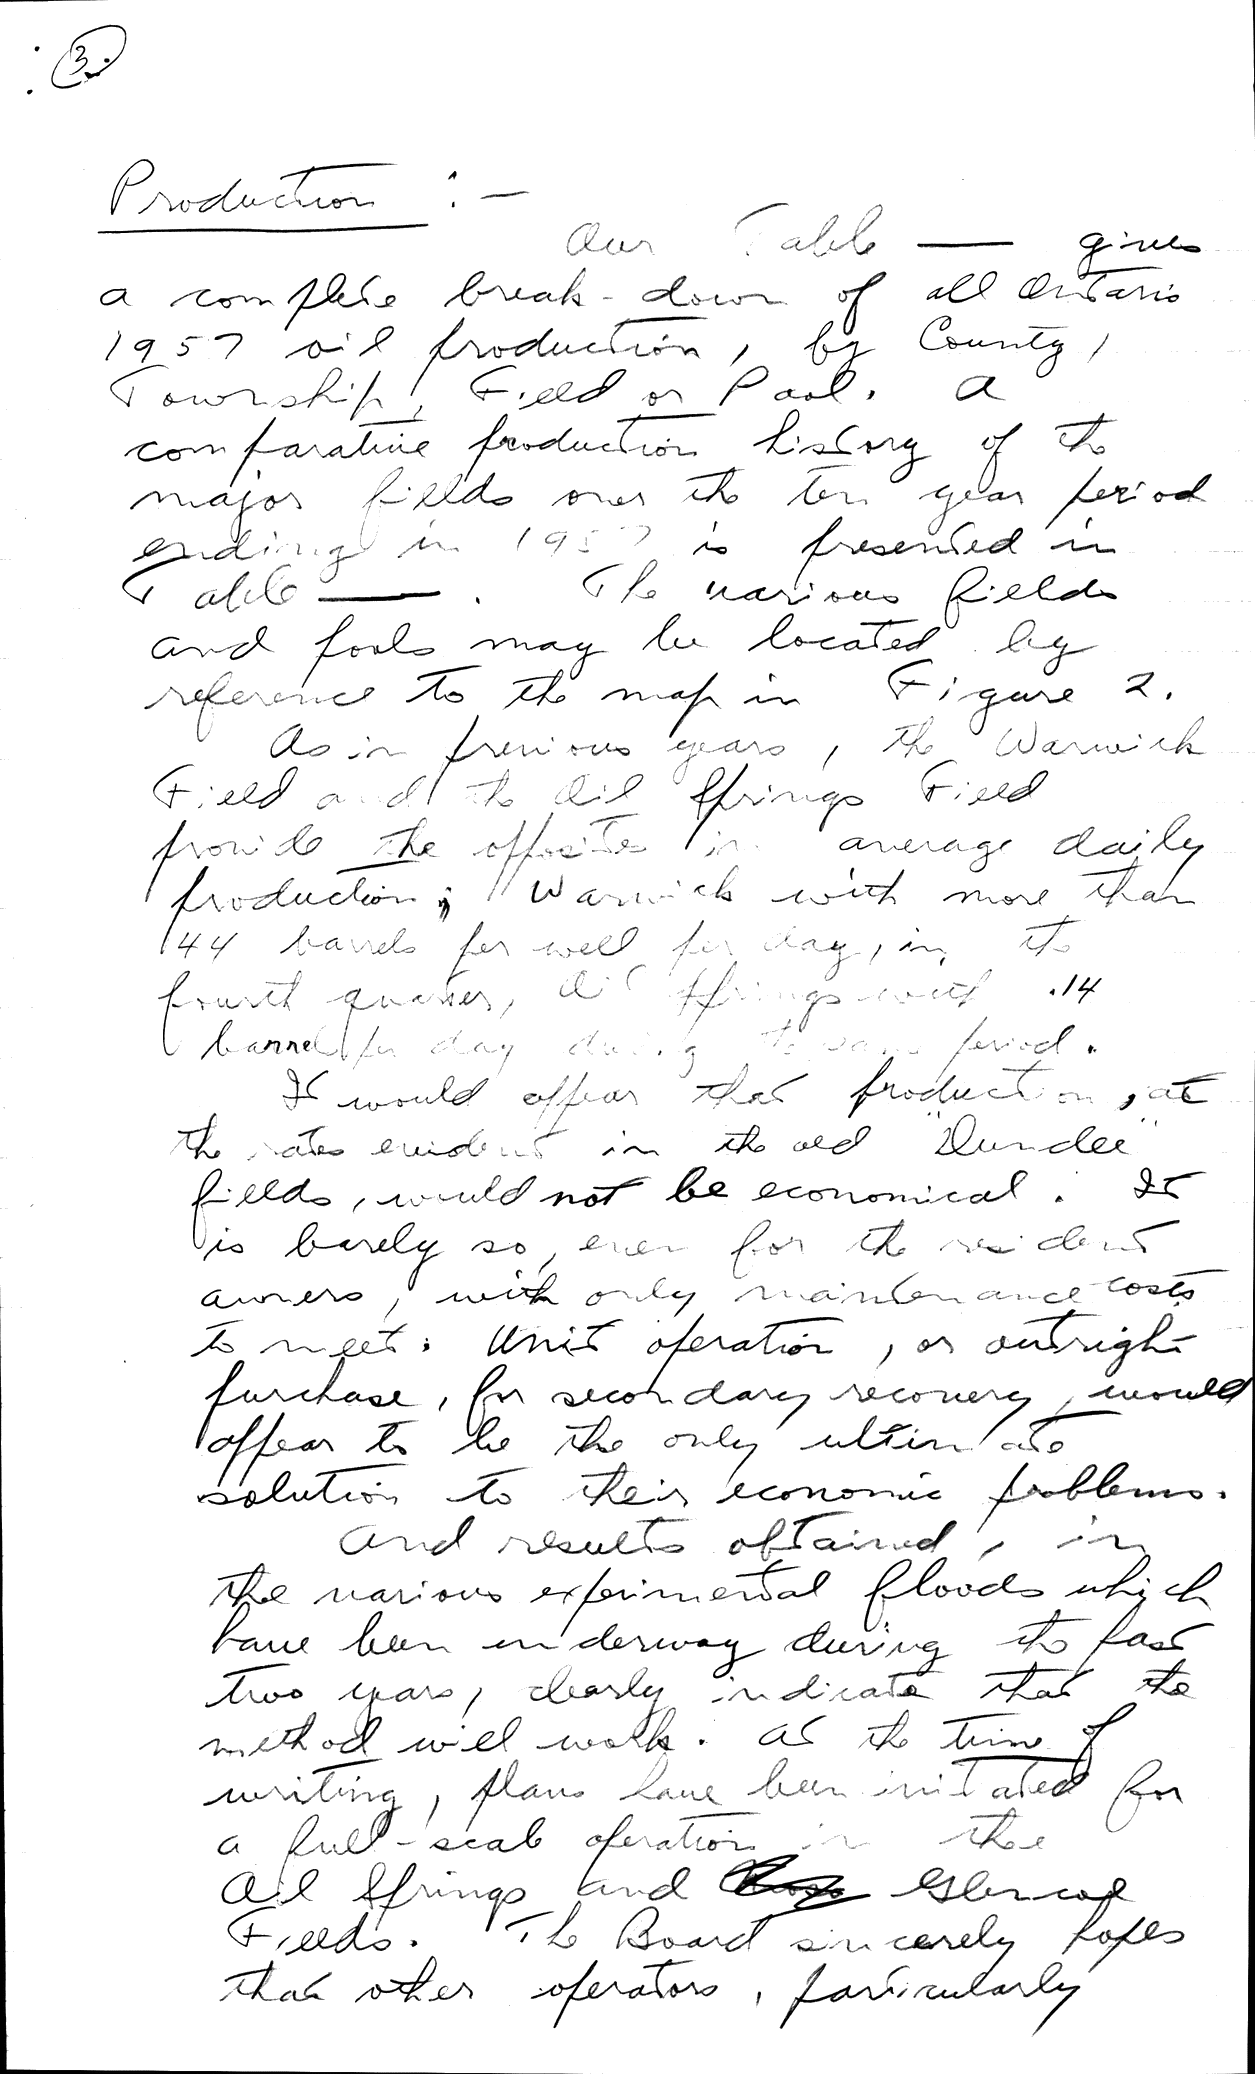 3.
Production :-
Our Table — gives
a complete break-down of all Ontario
1957 oil production, by County,
Township, Field or Pool. A
comparative production history of the
major fields over the ten year period
ending in 1957 is presented in
Table — . The various fields
and pools may be located by
reference to the map in Figure 2.
As in previous years, the Warwick
Field and the Oil Springs Field
provide the opposites in average daily
production; Warwick with more than
44 barrels per well per day, in the
fourth quarter, Oil Springs with .14
barrel per day during the same period.
It would appear that production, at
the rates evident in the old "Dundee"
fields, would not be economical. It
is barely so, even for the resident
owners, with only maintenance costs
to meet. Unit operation, or outright
purchase, for secondary recovery, would
appear to be the only ultimate
solution to their economic problems.
And results obtained, in
the various experimental floods which
have been underway during the past
two years, clearly indicate that the
method will work. At the time of
writing, plans have been initiated for
a full-scale operation in the
Oil Springs and Glencoe
Fields. The Board sincerely hopes
that other operators, particularly